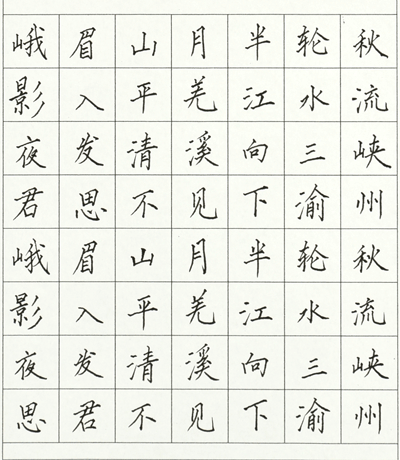 峨眉山月半轮秋
影入平羌江水流
夜发清溪向三峡
君思不见下渝州
峨眉山月半轮秋
影入平羌江水流
夜发清溪向三峡
思君不见下渝州